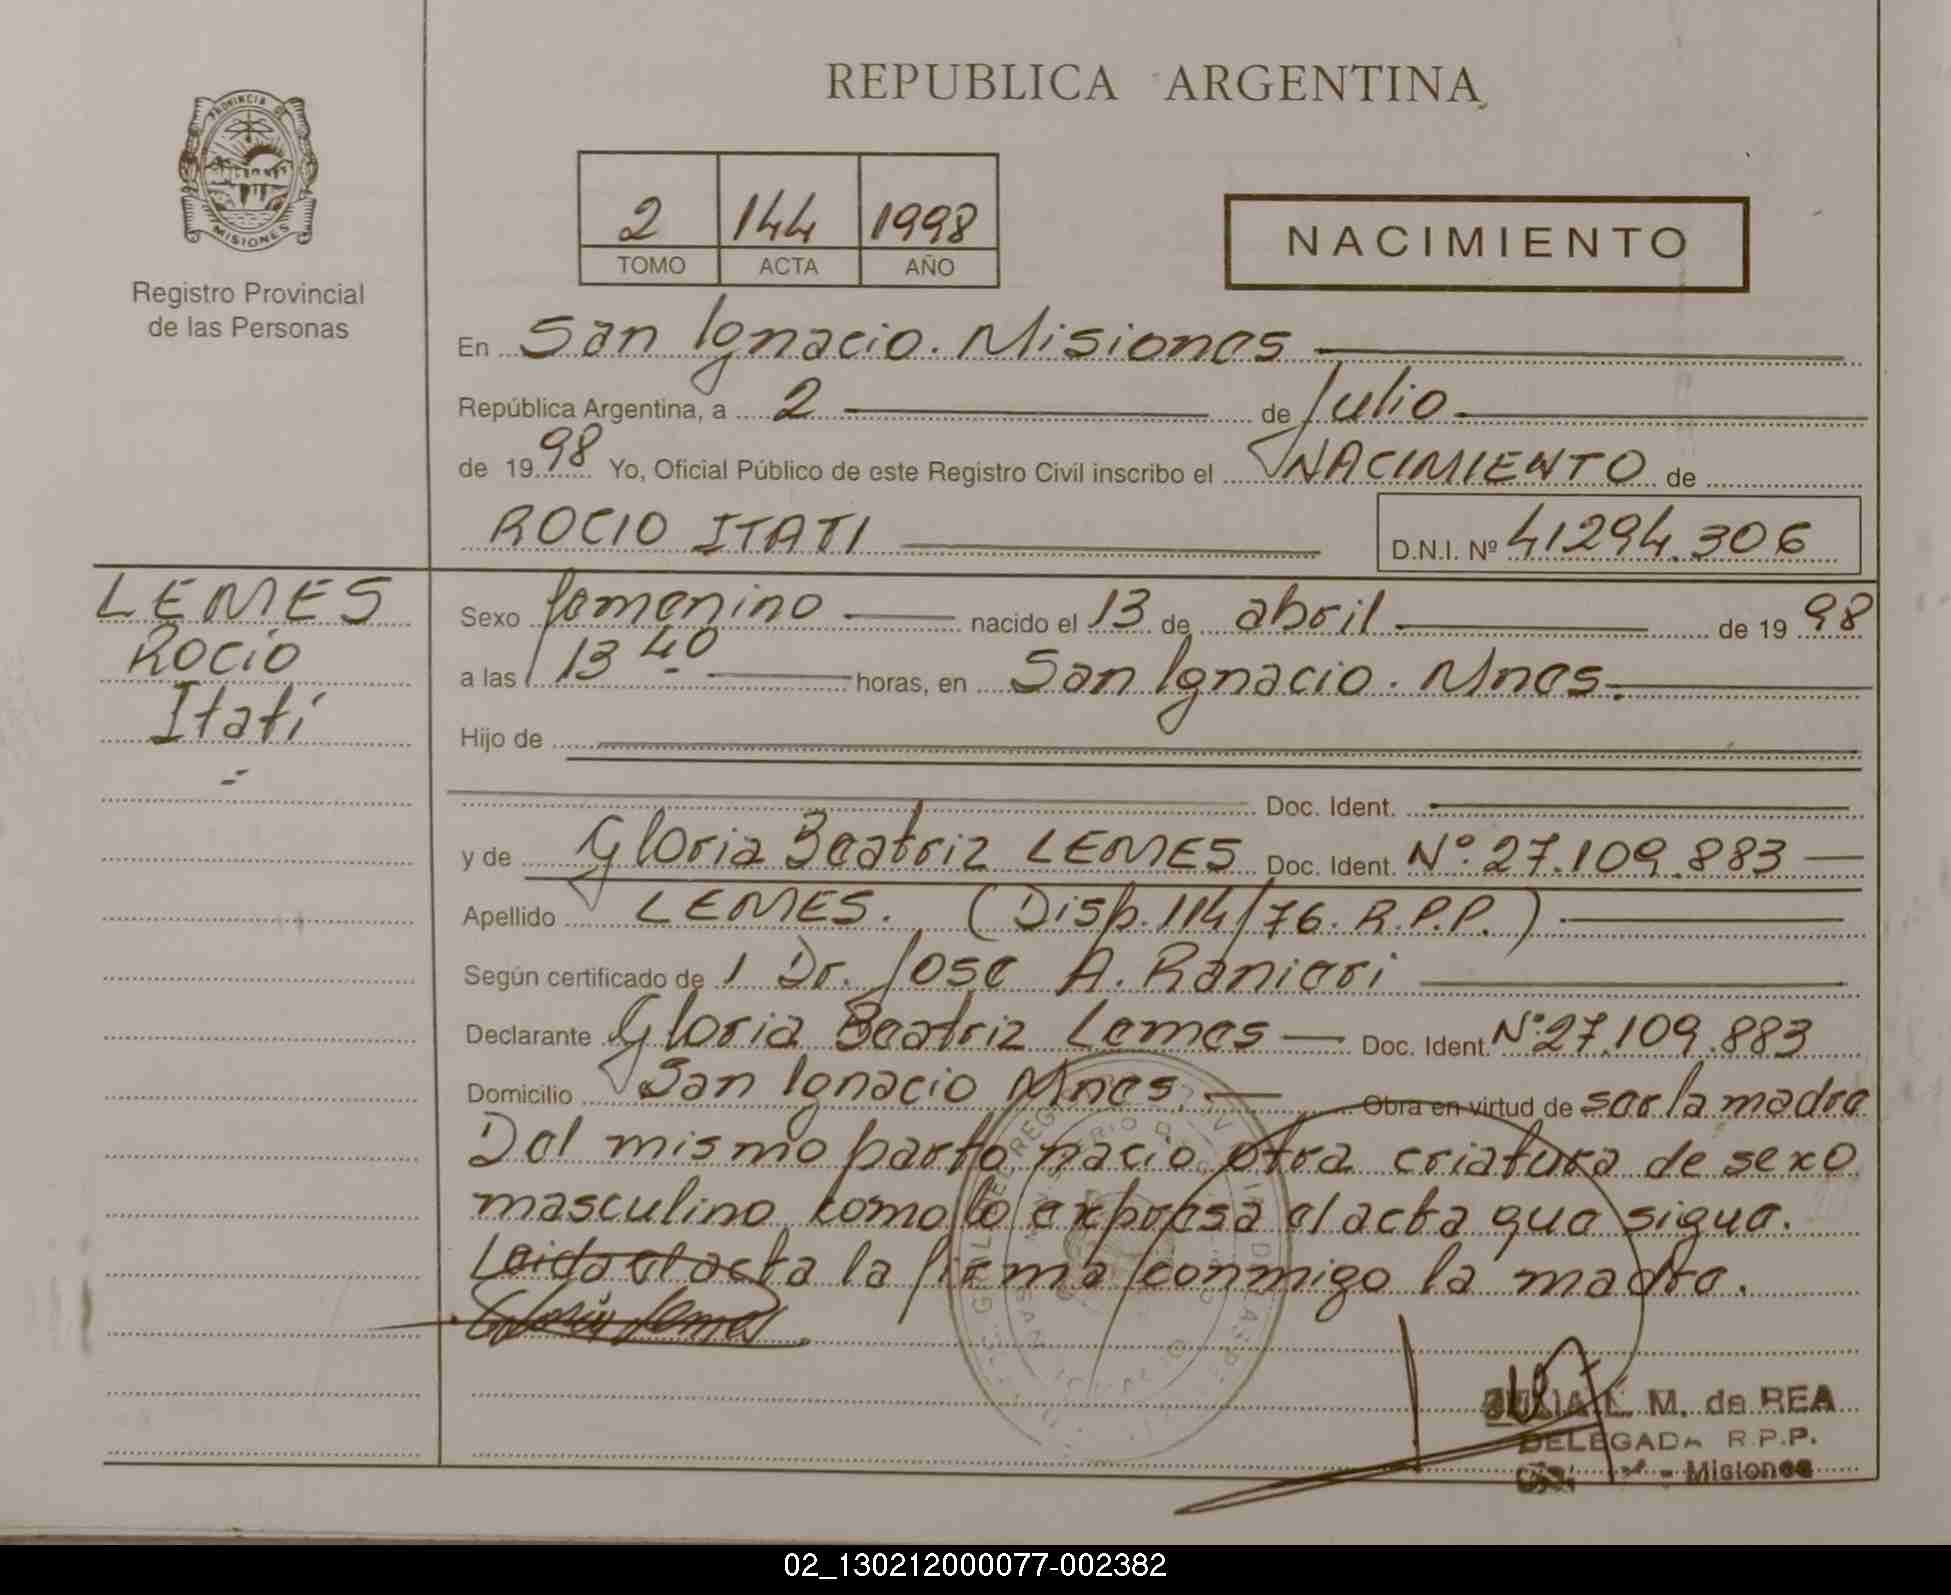 REPUBLICA ARGENTINA
PROVINCIA DE
MISIONES
Registro Provincial
de las Personas
2 144 1998
TOMO ACTA AÑO
NACIMIENTO
En San Ignacio. Misiones
República Argentina, a 2 de Julio
de 1998 Yo, Oficial Público de este Registro Civil inscribo el NACIMIENTO de
ROCIO ITATI
D.N.I. Nº 41294.306
LEMES
Rocío
Itatí
Sexo femenino nacido el 13 de abril de 1998
a las 13 40 horas, en San Ignacio. Mnes.
Hijo de
Doc. Ident.
y de Gloria Beatriz LEMES Doc. Ident. Nº. 27.109.883
Apellido LEMES. (Disp. 114/76. R.P.P.)
Según certificado de l Dr. Jose A. Ranieri
Declarante Gloria Beatriz Lemes Doc. Ident. Nº. 27.109.883
Domicilio San Ignacio Mnes. Obra en virtud de ser la madre
Del mismo parto nacio otra criatura de sexo
masculino como lo expresa el acta que sigue.
Leida el acta la firma conmigo la madre.
Gloria Lemes
JULIA L. M. de REA
DELEGADA R.P.P.
- Misiones
02_130212000077-002382